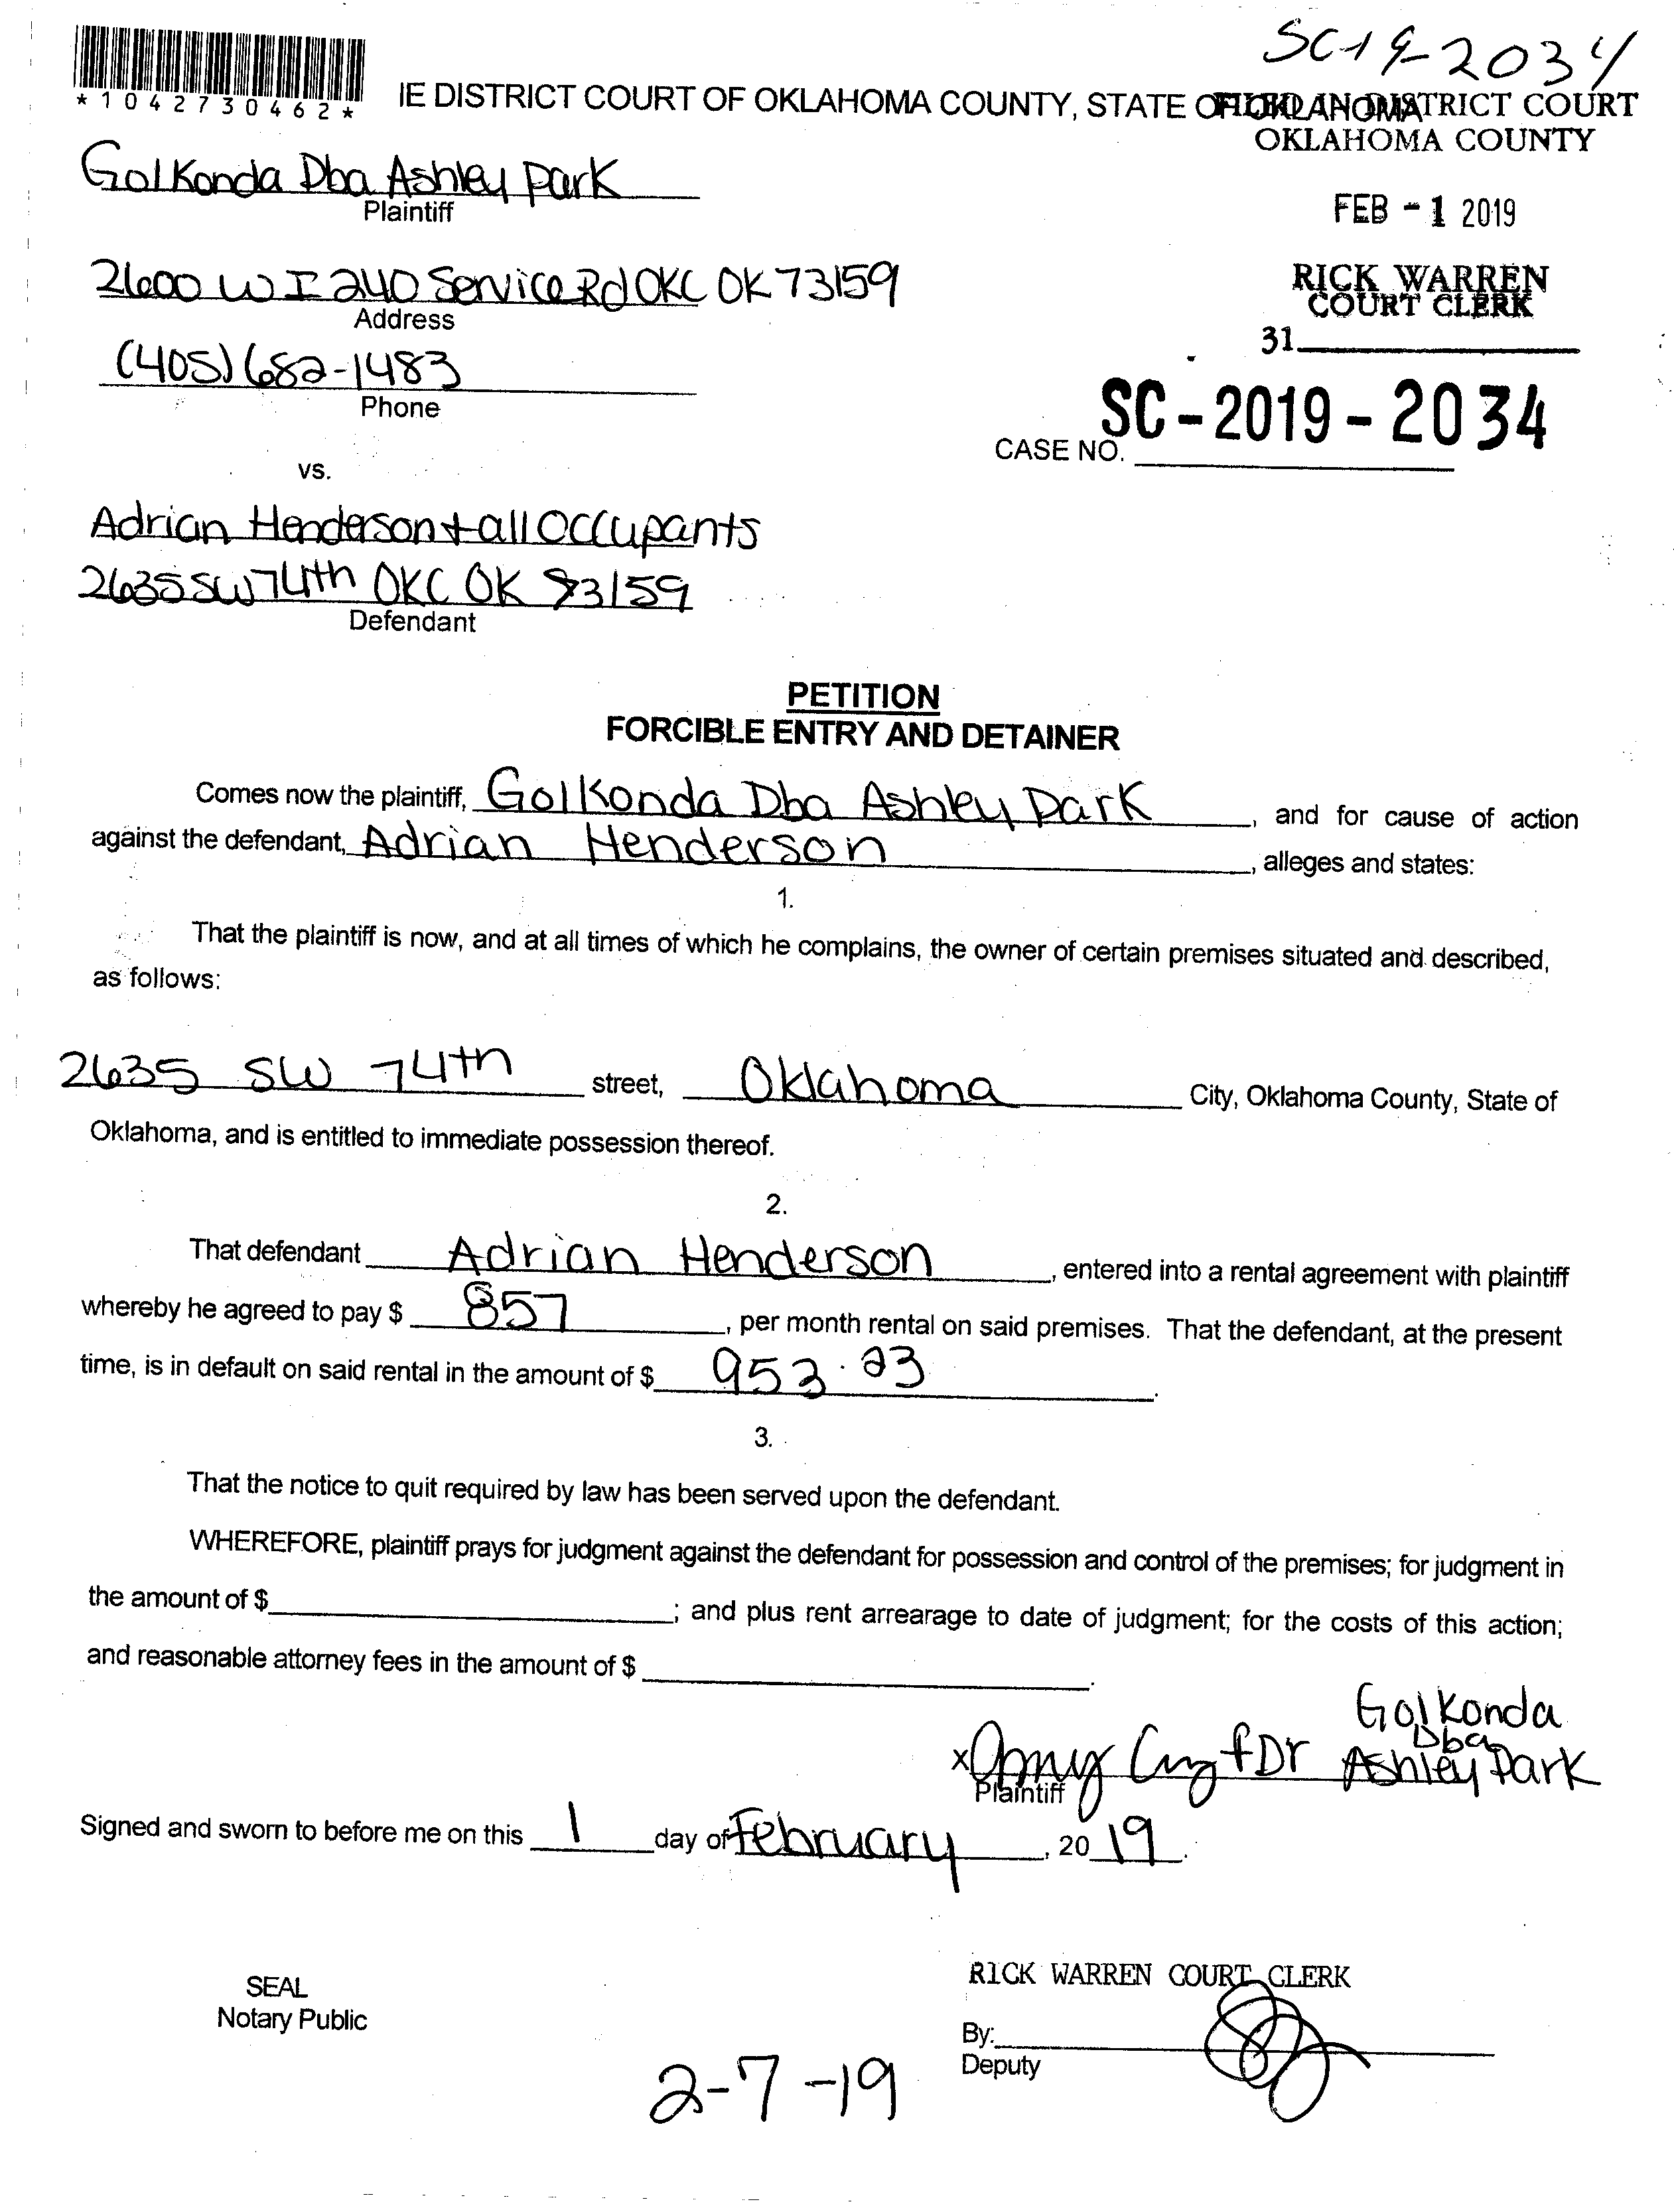 SC-19-2034
*1042730462*
IE DISTRICT COURT OF OKLAHOMA COUNTY, STATE OF OKLAHOMA
FILED IN DISTRICT COURT
OKLAHOMA COUNTY
Golkonda Dba Ashley Park
Plaintiff
FEB - 1 2019
2600 W I 240 Service Rd OKC OK 73159
Address
RICK WARREN
COURT CLERK
31
(405) 682-1483
Phone
SC - 2019 - 2034
CASE NO.
vs.
Adrian Henderson + all Occupants
2635 SW 74th OKC OK 73159
Defendant
PETITION
FORCIBLE ENTRY AND DETAINER
Comes now the plaintiff, Golkonda Dba Ashley Park, and for cause of action
against the defendant, Adrian Henderson, alleges and states:
1.
That the plaintiff is now, and at all times of which he complains, the owner of certain premises situated and described,
as follows:
2635 SW 74th street, Oklahoma City, Oklahoma County, State of
Oklahoma, and is entitled to immediate possession thereof.
2.
That defendant Adrian Henderson, entered into a rental agreement with plaintiff
whereby he agreed to pay $ 857, per month rental on said premises. That the defendant, at the present
time, is in default on said rental in the amount of $ 953.23.
3.
That the notice to quit required by law has been served upon the defendant.
WHEREFORE, plaintiff prays for judgment against the defendant for possession and control of the premises; for judgment in
the amount of $ ; and plus rent arrearage to date of judgment; for the costs of this action;
and reasonable attorney fees in the amount of $ .
Golkonda
Dba
x Amy fDr Ashley Park
Plaintiff
Signed and sworn to before me on this 1 day of February, 2019.
RICK WARREN COURT CLERK
SEAL
Notary Public
By:
Deputy
2-7-19